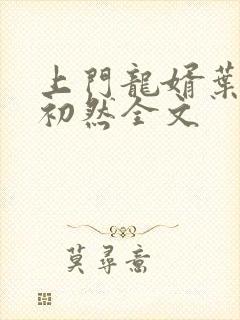 上門龍婿葉
初然全文
莫尋啻